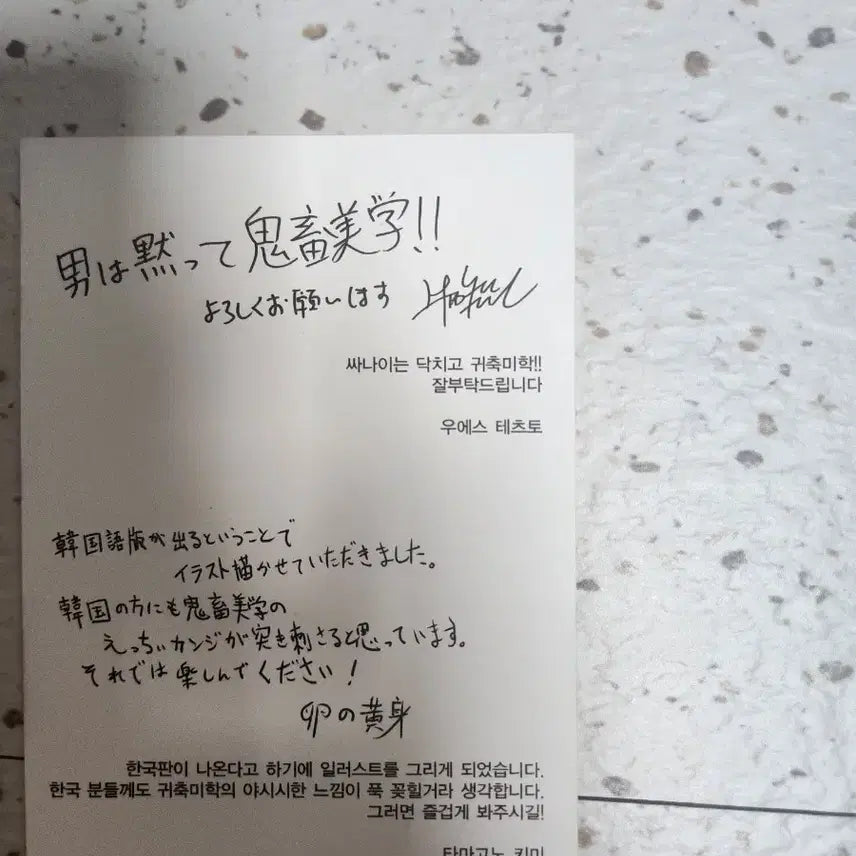 男は黙って鬼畜美学!!
よろしくお願いします
싸나이는 닥치고 귀축미학!!
잘부탁드립니다
우에스 테츠토
韓国語版が出るということで
イラスト描かせていただきました。
韓国の方にも鬼畜美学の
えっちぃカンジが突き刺さると思っています。
それでは楽しんでください!
卵の黄身
한국판이 나온다고 하기에 일러스트를 그리게 되었습니다.
한국 분들께도 귀축미학의 야시시한 느낌이 푹 꽂힐거라 생각합니다.
그러면 즐겁게 봐주시길!
타마고노 키미